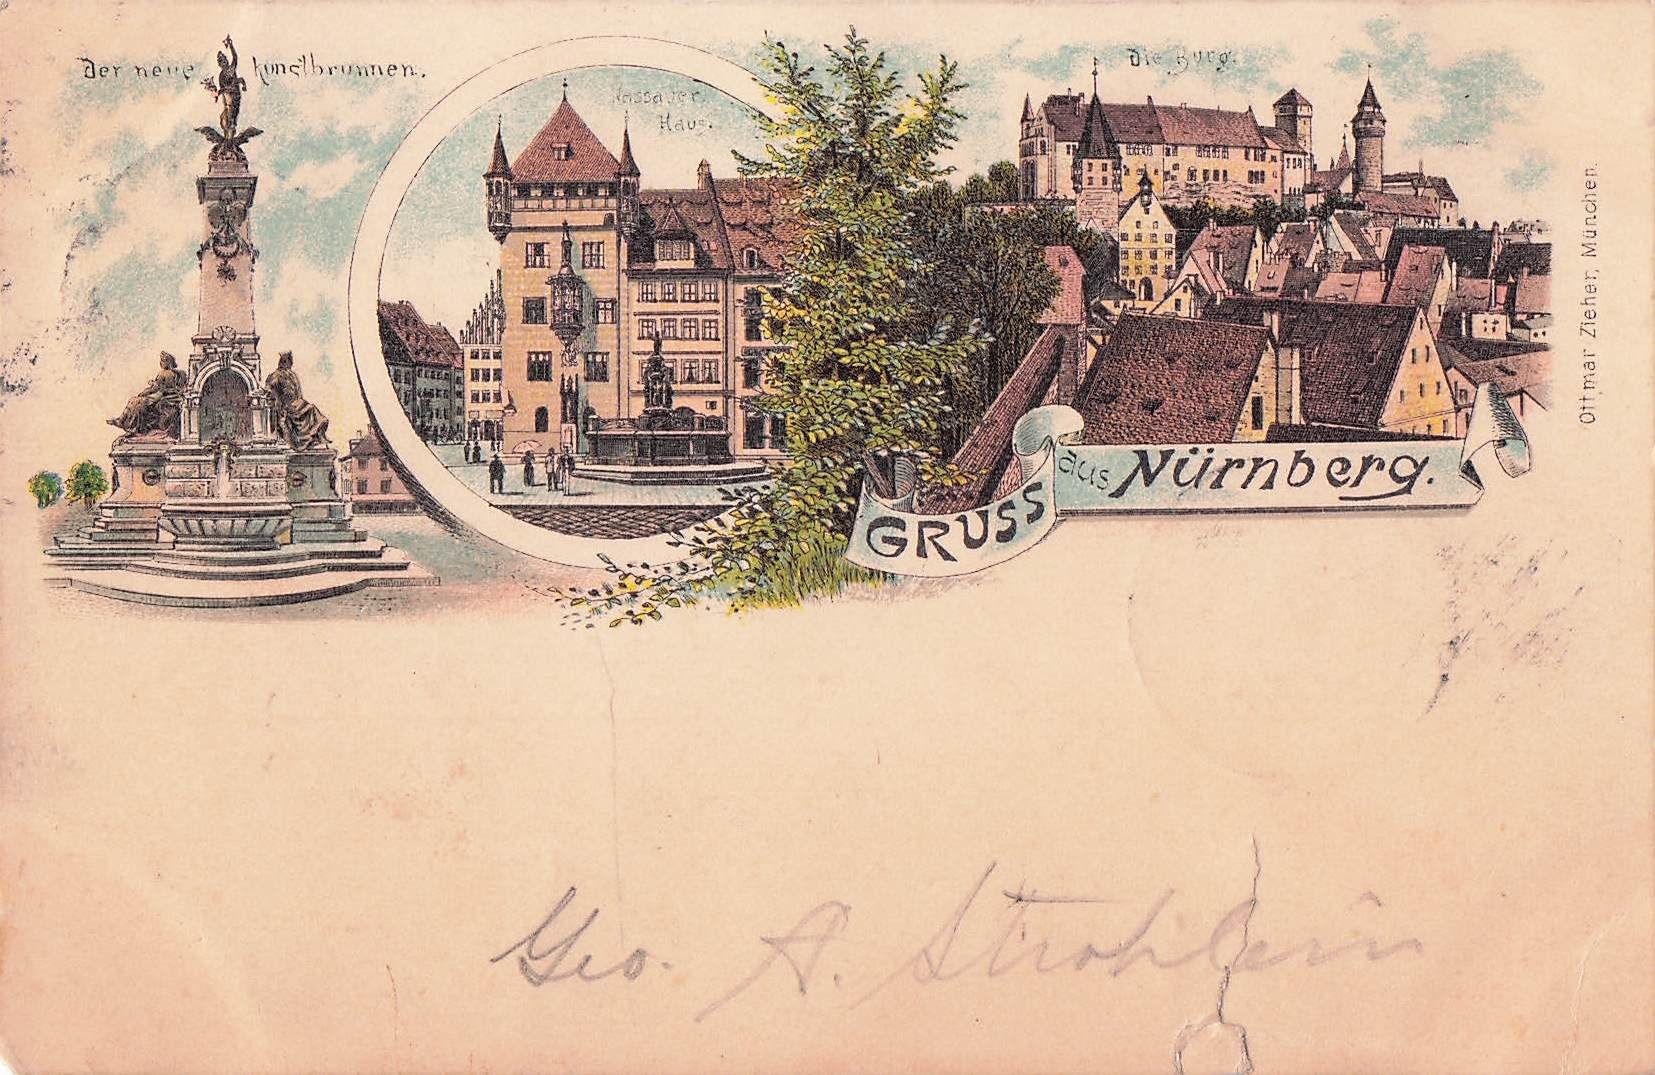 Der neue Kunstbrunnen.
Nassauer
Haus.
Die Burg.
GRUSS aus Nürnberg.
Ottmar Zieher, München.
Geo. A. Strohlein